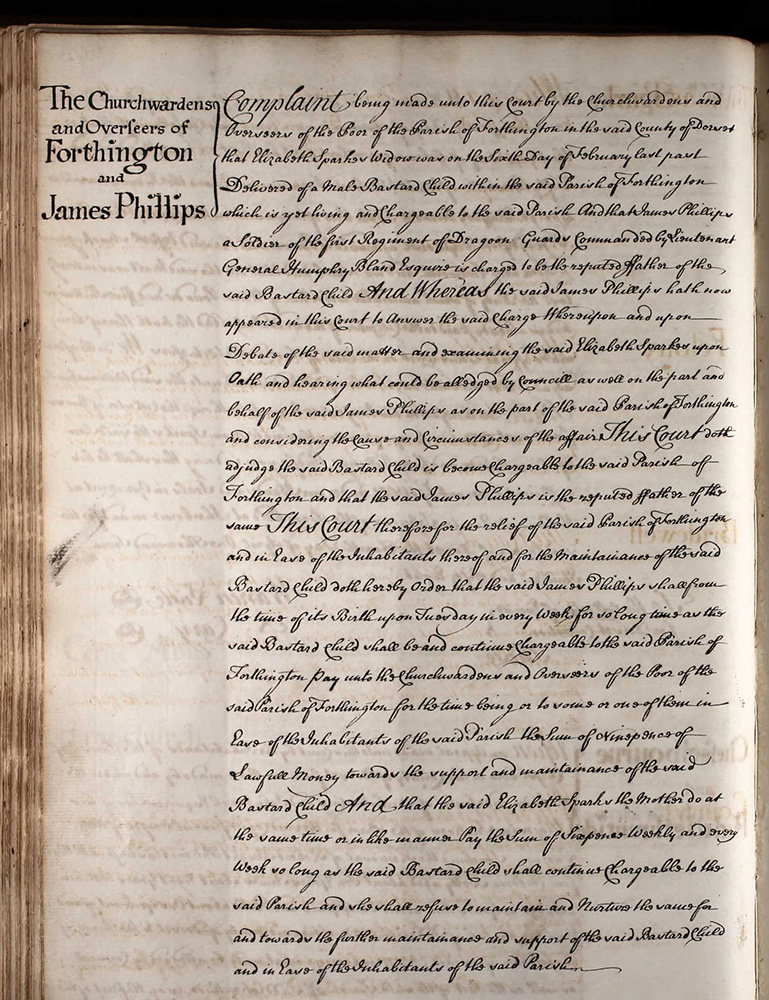 The Churchwardens
and Overseers of
Forthington
and
James Phillips
Complaint being made unto this Court by the Churchwardens and
Overseers of the Poor of the Parish of Forthington in the said County of Dorset
that Elizabeth Sparkes Widow was on the Sixth Day of February last past
Delivered of a Male Bastard Child within the said Parish of Forthington
which is yet living and Chargeable to the said Parish And that James Phillips
a Soldier of the first Regiment of Dragoon Guards Commanded by Lieutenant
General Humphry Bland Esquire is charged to be the reputed ffather of the
said Bastard Child And Whereas the said James Phillips hath now
appeared in this Court to Answer the said Charge Whereupon and upon
Debate of the said matter and examining the said Elizabeth Sparkes upon
Oath and hearing what could be alledged by Councill as well on the part and
behalf of the said James Phillips as on the part of the said Parish of Forthington
and considering the Cause and Circumstances of the affair This Court doth
adjudge the said Bastard Child is become Chargeable to the said Parish of
Forthington and that the said James Phillips is the reputed ffather of the
same This Court therefore for the relief of the said Parish of Forthington
and in Ease of the Inhabitants thereof and for the Maintainance of the said
Bastard Child doth hereby Order that the said James Phillips shall from
the time of its Birth upon Tuesday in every Week for so long time as the
said Bastard Child shall be and continue Chargeable to the said Parish of
Forthington pay unto the Churchwardens and Overseers of the Poor of the
said Parish of Forthington for the time being or to some or one of them in
Ease of the Inhabitants of the said Parish the Sum of Ninepence of
Lawfull Money towards the support and maintainance of the said
Bastard Child And that the said Elizabeth Sparks the Mother do at
the same time or in like manner Pay the Sum of Sixpence Weekly and every
Week so long as the said Bastard Child shall continue Chargeable to the
said Parish and she shall refuse to maintain and Nurture the same for
and towards the further maintainance and support of the said Bastard Child
and in Ease of the Inhabitants of the said Parish